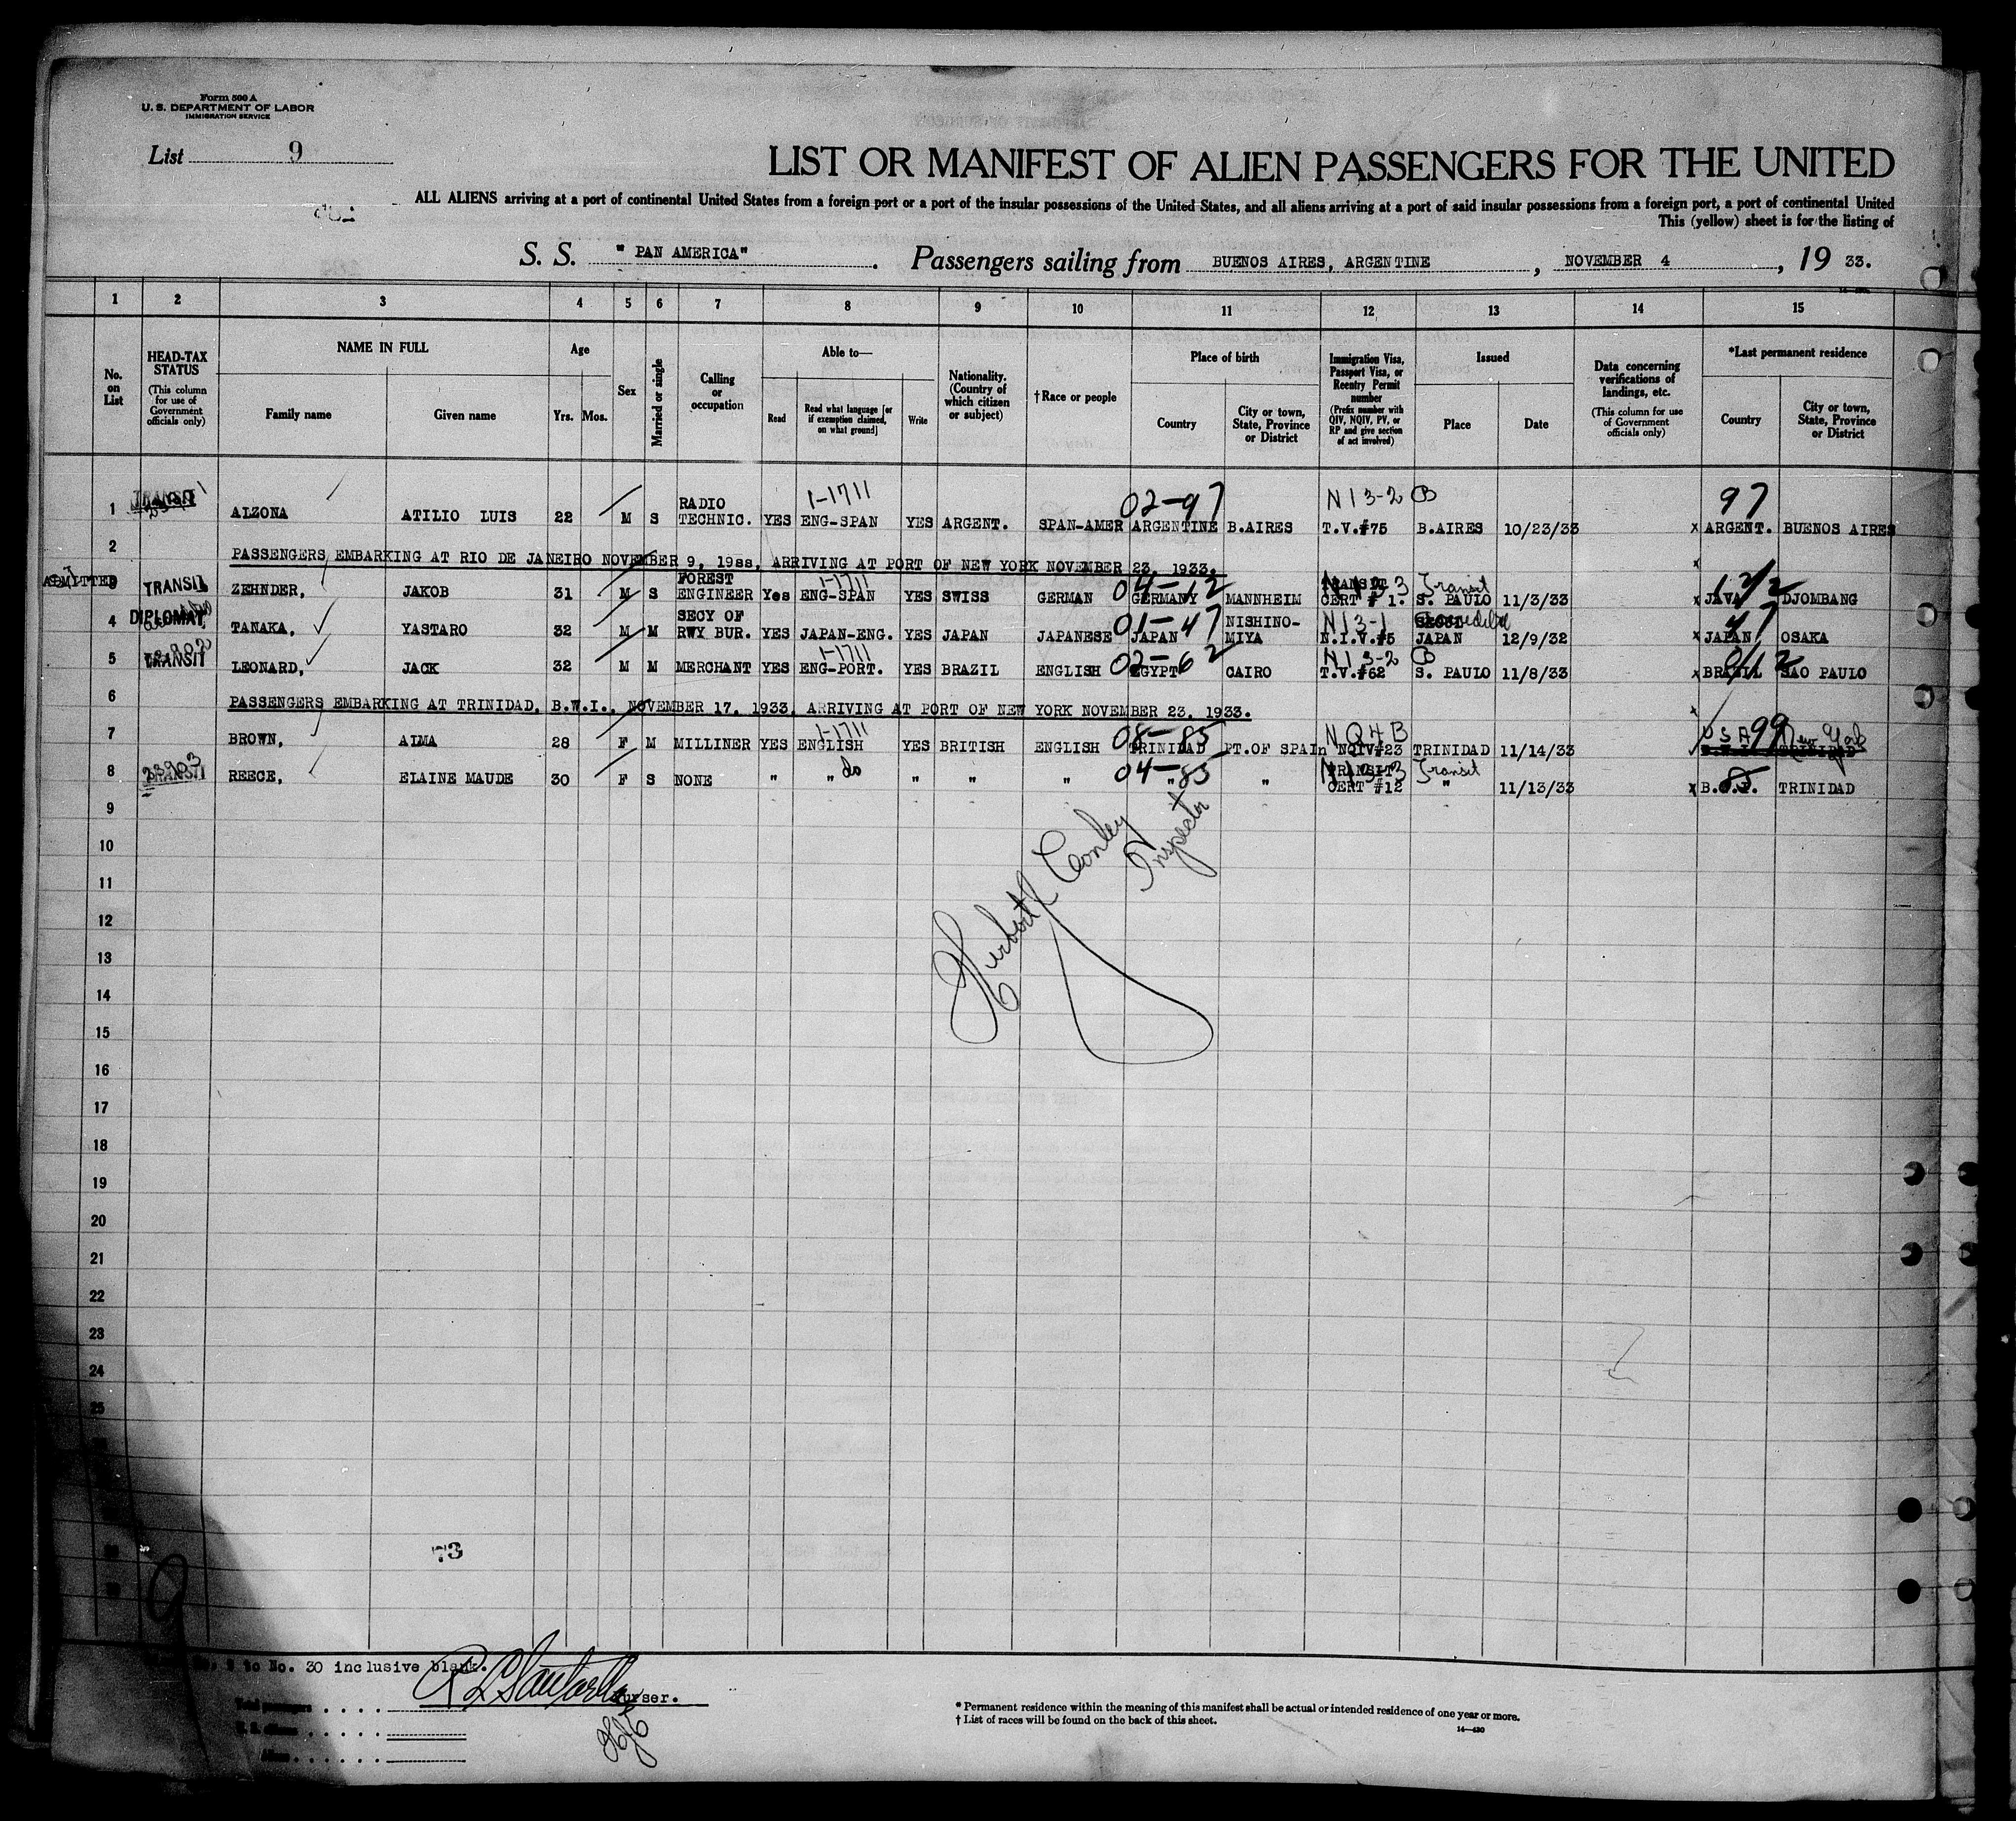 Form 500 A
U. S. DEPARTMENT OF LABOR
IMMIGRATION SERVICE
List 9
LIST OR MANIFEST OF ALIEN PASSENGERS FOR THE UNITED
ALL ALIENS arriving at a port of continental United States from a foreign port or a port of the insular possessions of the United States, and all aliens arriving at a port of said insular possessions from a foreign port, a port of continental United
This (yellow) sheet is for the listing of
S. S. "PAN AMERICA". Passengers sailing from BUENOS AIRES, ARGENTINE, NOVEMBER 4, 19 33.
1 2 3 4 5 6 7 8 9 10 11 12 13 14 15
No. on List
HEAD-TAX STATUS (This column for use of Government officials only)
NAME IN FULL
Family name Given name
Age
Yrs. Mos.
Sex
Married or single
Calling or occupation
Able to—
Read Read what language [or if exemption claimed, on what ground] Write
Nationality. (Country of which citizen or subject)
† Race or people
Place of birth
Country City or town, State, Province or District
Immigration Visa, Passport Visa, or Reentry Permit number (Prefix number with QIV, NQIV, PV, or RP and give section of act involved)
Issued
Place Date
Data concerning verifications of landings, etc. (This column for use of Government officials only)
*Last permanent residence
Country City or town, State, Province or District
1-1711 02-97 N13-2 B 97
1 TRANSIT ALZONA ATILIO LUIS 22 M S RADIO TECHNIC. YES ENG-SPAN YES ARGENT. SPAN-AMER ARGENTINE B.AIRES T.V.#75 B.AIRES 10/23/33 x ARGENT. BUENOS AIRES
2 PASSENGERS EMBARKING AT RIO DE JANEIRO NOVEMBER 9, 19ss, ARRIVING AT PORT OF NEW YORK NOVEMBER 23, 1933.
1-1711 04-12 Transit
ADMITTED 3 TRANSIT ZEHNDER, JAKOB 31 M S FOREST ENGINEER Yes ENG-SPAN YES SWISS GERMAN GERMANY MANNHEIM TRANSIT CERT # 1. S. PAULO 11/3/33 x JAVA DJOMBANG
01-47 N13-1 47
4 DIPLOMAT, TANAKA, YASTARO 32 M M SECY OF RWY BUR. YES JAPAN-ENG. YES JAPAN JAPANESE JAPAN NISHINO-MIYA N.I.V.#5 JAPAN 12/9/32 x JAPAN OSAKA
1-1711 02-62 N13-2 B
5 TRANSIT LEONARD, JACK 32 M M MERCHANT YES ENG-PORT. YES BRAZIL ENGLISH EGYPT CAIRO T.V.#62 S. PAULO 11/8/33 x BRAZIL SAO PAULO
6 PASSENGERS EMBARKING AT TRINIDAD, B.W.I., NOVEMBER 17, 1933, ARRIVING AT PORT OF NEW YORK NOVEMBER 23, 1933.
1-1711 08-85 NQ4B USA 99 New York
7 BROWN, ALMA 28 F M MILLINER YES ENGLISH YES BRITISH ENGLISH TRINIDAD PT.OF SPAIn NQIV#23 TRINIDAD 11/14/33 TRINIDAD
do 04-85 Transit 85
8 TRANSIT REECE, ELAINE MAUDE 30 F S NONE " " " " " " " TRANSIT CERT #12 " 11/13/33 x B.W.I. TRINIDAD
9
10
11
12
13
14
15
16
17
18
19
20
21
22
23
24
25
Herbert Conley
Inspector
73
9
No. 9 to No. 30 inclusive blank.
Purser.
Total passengers
U. S. citizens
Aliens
* Permanent residence within the meaning of this manifest shall be actual or intended residence of one year or more.
† List of races will be found on the back of this sheet.
14—430